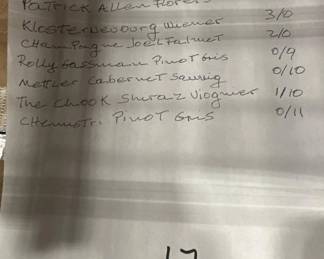 Patrick Allen Flores
Klosterneuburg Wiener 3/0
Champagne Joel Falmet 2/0
Rolly Gassmann Pinot Gris 0/9
Mettler Cabernet Sauvig 0/10
The Chook Shiraz Viognier 1/10
Chemistri Pinot Gris 0/11
17